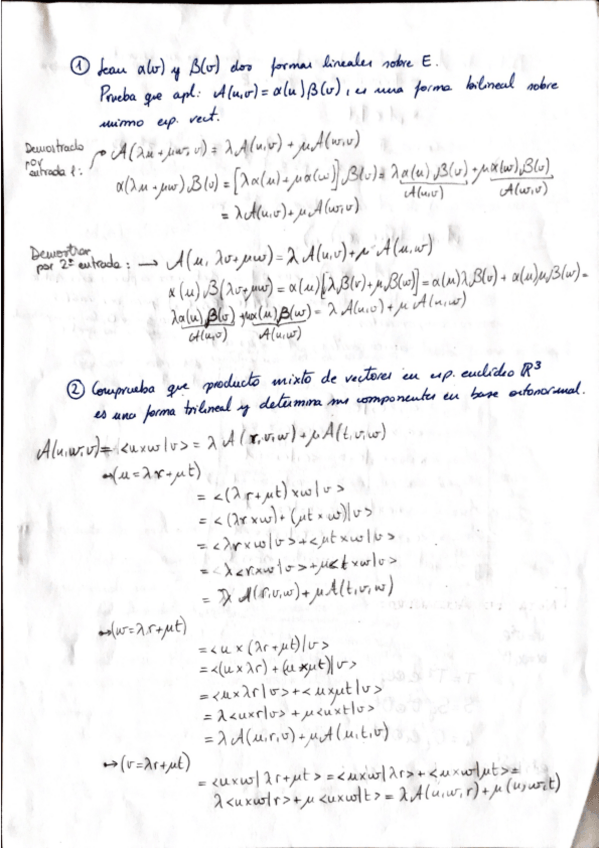 ① Sean α(v) y β(v) dos formas lineales sobre E.
Prueba que apl: A(u,v) = α(u) β(v), es una forma bilineal sobre
mismo esp. vect.
Demostrado por entrada 1: → A(λu+μw, v) = λ A(u,v) + μ A(w,v)
α(λu+μw) β(v) = [λα(u) + μα(w)] β(v) = λ α(u) β(v) + μ α(w) β(v)
A(u,v) A(w,v)
= λ A(u,v) + μ A(w,v)
Demostrar por 2ª entrada: → A(u, λv+μw) = λ A(u,v) + μ A(u,w)
α(u) β(λv+μw) = α(u) [λβ(v) + μβ(w)] = α(u)λβ(v) + α(u)μβ(w) =
λα(u) β(v) + μα(u) β(w) = λ A(u,v) + μ A(u,w)
A(u,v) A(u,w)
② Comprueba que producto mixto de vectores en esp. euclídeo ℝ³
es una forma trilineal y determina sus componentes en base ortonormal.
A(u,w,v) = <u×w|v> = λ A(r,v,w) + μ A(t,v,w)
↦ (u = λr+μt)
= <(λr+μt)×w|v>
= <(λr×w)+(μt×w)|v>
= <λr×w|v> + <μt×w|v>
= λ<r×w|v> + μ<t×w|v>
= λ A(r,v,w) + μ A(t,v,w)
↦ (w = λr+μt)
= <u×(λr+μt)|v>
= <(u×λr)+(u×μt)|v>
= <u×λr|v> + <u×μt|v>
= λ<u×r|v> + μ<u×t|v>
= λ A(u,r,v) + μ A(u,t,v)
↦ (v = λr+μt)
= <u×w|λr+μt> = <u×w|λr> + <u×w|μt> =
λ<u×w|r> + μ<u×w|t> = λ A(u,w,r) + μ(u,w,t)